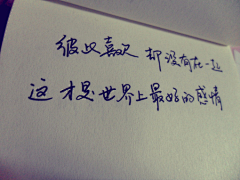 彼此喜欢 却没有在一起
这才是世界上最好的感情